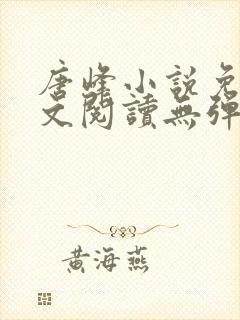 唐峰小説免
文閱讀無彈
黃海燕